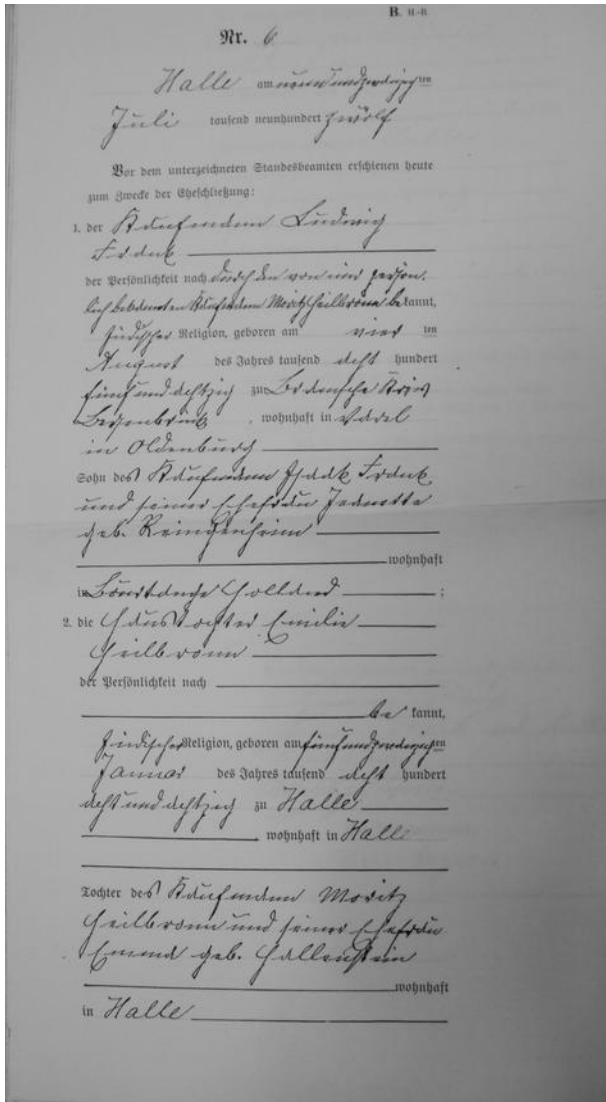 B. H.-R.
Nr. 6
Halle am neunundzwanzigsten
Juli tausend neunhundert zwölf
Vor dem unterzeichneten Standesbeamten erschienen heute
zum Zwecke der Eheschließung:
1. der Kaufmann Ludwig
Frank
der Persönlichkeit nach durch den von mir person.
lich bekannten Kaufmann Moritz Heilbronn bekannt,
jüdischer Religion, geboren am vier ten
August des Jahres tausend acht hundert
fünf und achtzig zu Bramsche Kreis
Bersenbrück, wohnhaft in Varel
in Oldenburg
Sohn des Kaufmann Isaak Frank
und seiner Ehefrau Jeanette
geb.
wohnhaft
in Bourtange Holland ;
2. die Haustochter Emilie
Heilbronn
der Persönlichkeit nach
be kannt,
jüdischer Religion, geboren am fünfundzwanzigsten
Januar des Jahres tausend acht hundert
acht und achtzig zu Halle
, wohnhaft in Halle
Tochter des Kaufmann Moritz
Heilbronn und seiner Ehefrau
Emma geb. Hallenstein
wohnhaft
in Halle